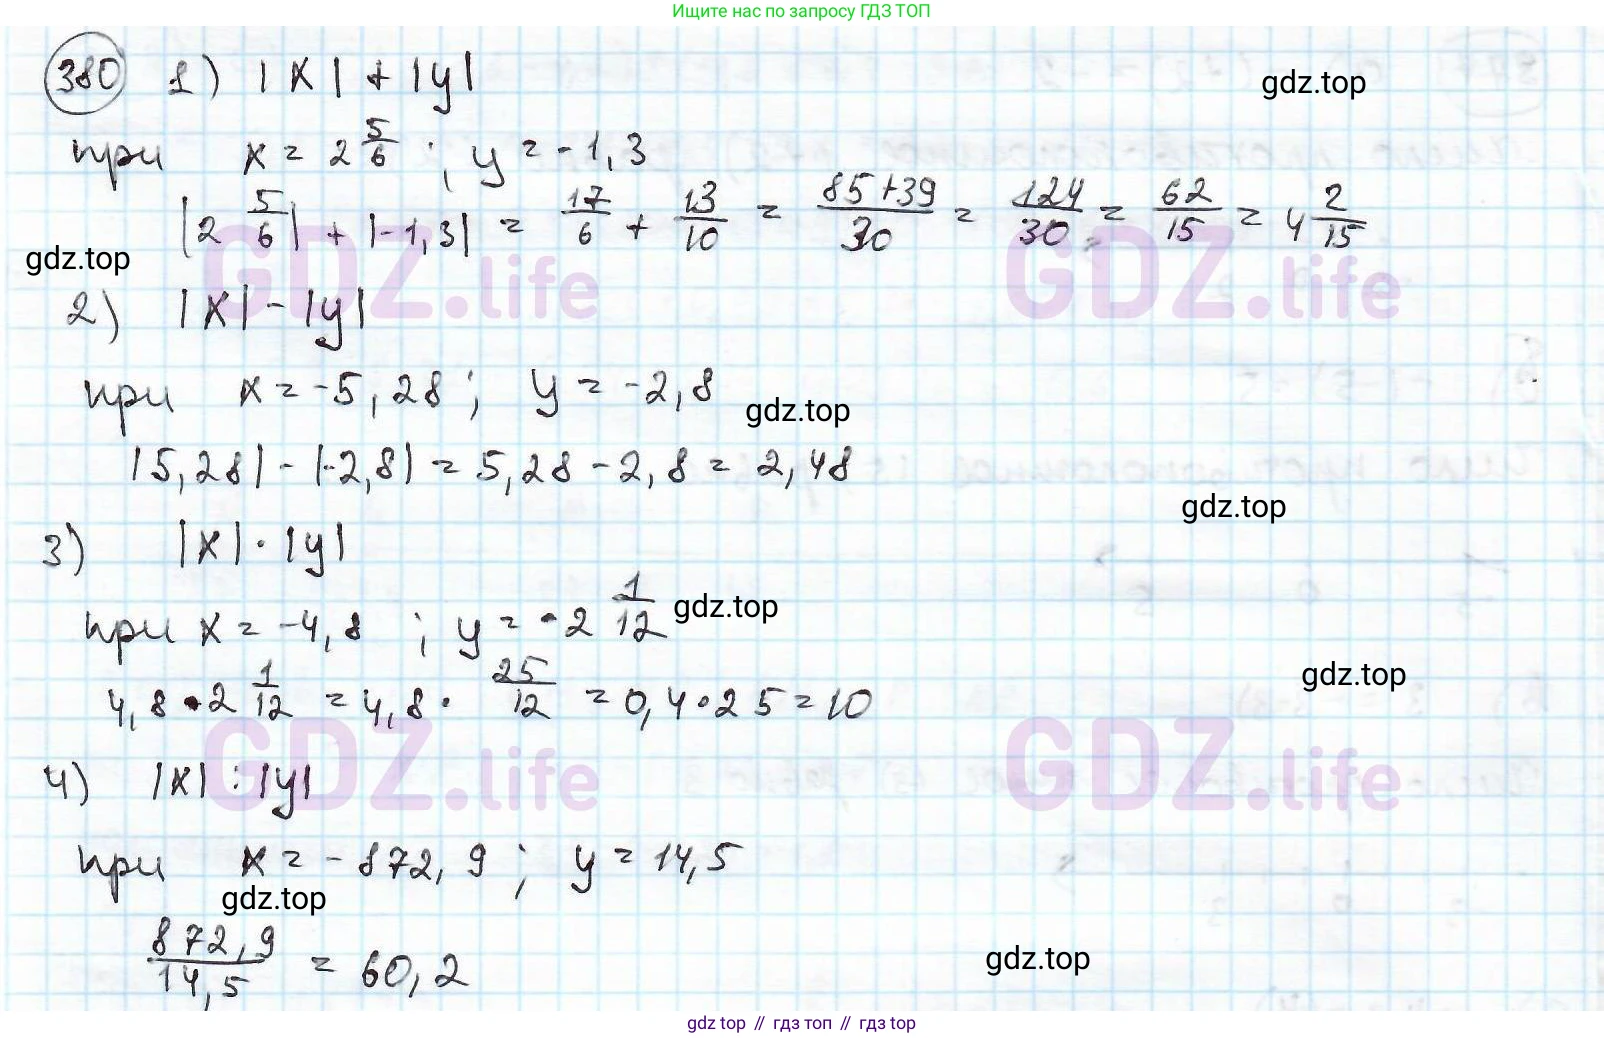 Ищите нас по запросу ГДЗ ТОП
380 1) |x| + |y|
gdz.top
при x = 2 5/6 ; y = -1,3
|2 5/6| + |-1,3| = 17/6 + 13/10 = 85+39/30 = 124/30 = 62/15 = 4 2/15
gdz.top
GDZ.life GDZ.life
2) |x| - |y|
при x = -5,28 ; y = -2,8
gdz.top
|5,28| - |-2,8| = 5,28 - 2,8 = 2,48
gdz.top
3) |x| · |y|
при x = -4,8 ; y = -2 1/12
gdz.top
gdz.top
4,8 · 2 1/12 = 4,8 · 25/12 = 0,4 · 25 = 10
GDZ.life GDZ.life
4) |x| : |y|
при x = -872,9 ; y = 14,5
gdz.top
872,9/14,5 = 60,2
gdz.top
gdz top // гдз топ // gdz top